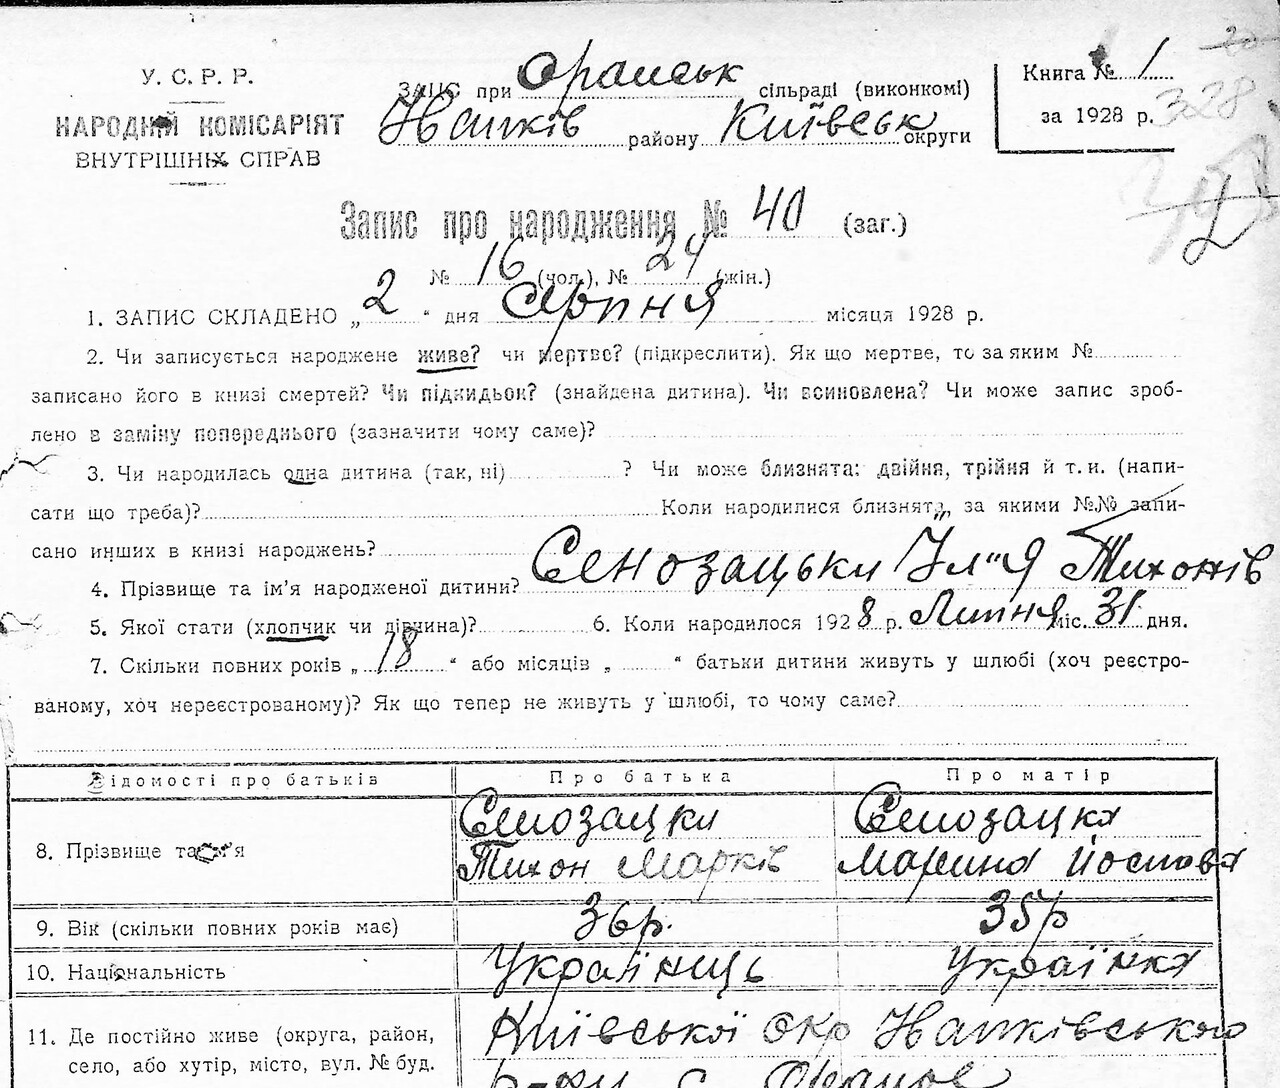 У. С. Р. Р.
НАРОДНІЙ КОМІСАРІЯТ
ВНУТРІШНІХ СПРАВ
ЗАПИС при Оранськ сільраді (виконкомі)
району Київськ округи
Книга № 1
за 1928 р.
328
Запис про народження № 40 (заг.)
№ 16 (чол.), № 24 (жін.)
1. ЗАПИС СКЛАДЕНО „ 2 “ дня Серпня місяця 1928 р.
2. Чи записується народжене живе? чи мертве? (підкреслити). Як що мертве, то за яким №
записано його в книзі смертей? Чи підкидьок? (знайдена дитина). Чи всиновлена? Чи може запис зроб-
лено в заміну попереднього (зазначити чому саме)?
3. Чи народилась одна дитина (так, ні) ? Чи може близнята: двійня, трійня й т. и. (напи-
сати що треба)? Коли народилися близнята, за якими №№ запи-
сано инших в книзі народжень?
4. Прізвище та ім’я народженої дитини? Сенозацьки Ілья Тихонів
5. Якої стати (хлопчик чи дівчина)? 6. Коли народилося 1928 р. Липня міс. 31 дня.
7. Скільки повних років „ 18 “ або місяців „ “ батьки дитини живуть у шлюбі (хоч реєстро-
ваному, хоч нереєстрованому)? Як що тепер не живуть у шлюбі, то чому саме?
Відомості про батьків Про батька Про матір
8. Прізвище та ім’я Сенозацки Тихон Марків Сенозацка Марина
9. Вік (скільки повних років має) 36 р. 35 р
10. Національність Українець Українка
11. Де постійно живе (округа, район, Київської Окр
село, або хутір, місто, вул. № буд. р-ну с. Оране